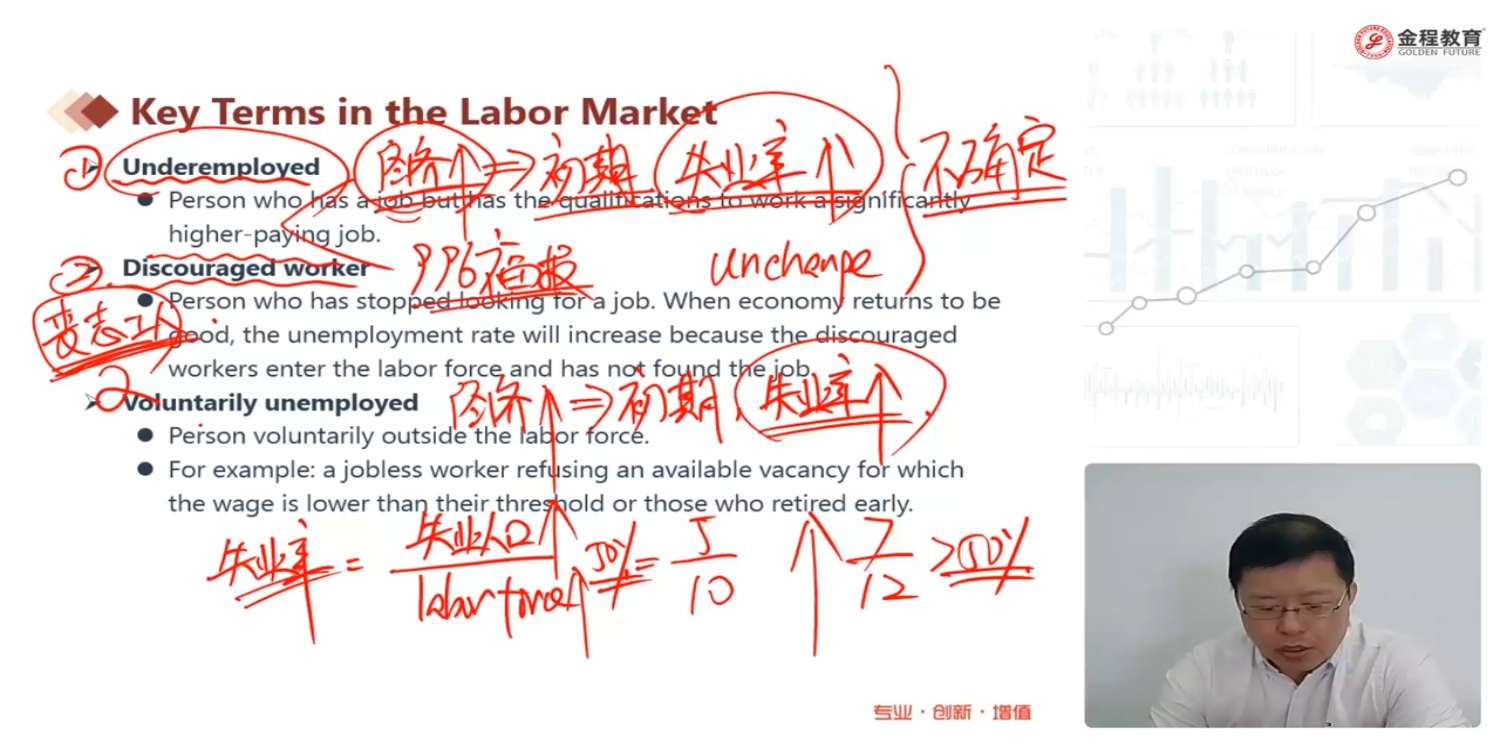 金程教育
GOLDEN FUTURE
Key Terms in the Labor Market
① Underemployed
经济↑ ⇒ 初期 失业率↑
不确定
Person who has a job but has the qualifications to work a significantly
higher-paying job.
996福报 unchange
② Discouraged worker
Person who has stopped looking for a job. When economy returns to be
good, the unemployment rate will increase because the discouraged
workers enter the labor force and has not found the job.
丧志工人
2
经济↑ ⇒ 初期, 失业率↑
Voluntarily unemployed
Person voluntarily outside the labor force.
For example: a jobless worker refusing an available vacancy for which
the wage is lower than their threshold or those who retired early.
失业率 = 失业人口↑ / labor force↑ 50% = 5/10 ↑ 7/12 > 50%
专业·创新·增值